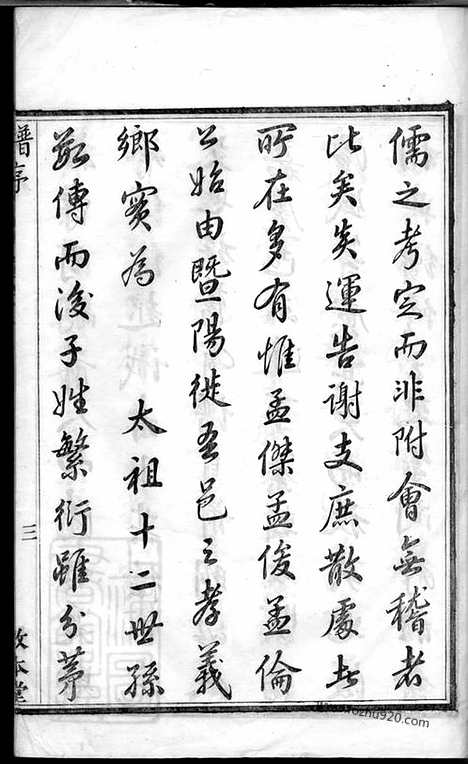 儒之考定而非附會無稽者
比矣矣運告謝支庶散處
所在多有惟孟傑孟俊孟倫
公始由暨陽徙吾邑之孝義
鄉實為 太祖十二世孫
數傳而後子姓繁衍雖分茅
譜序
三
敦本堂